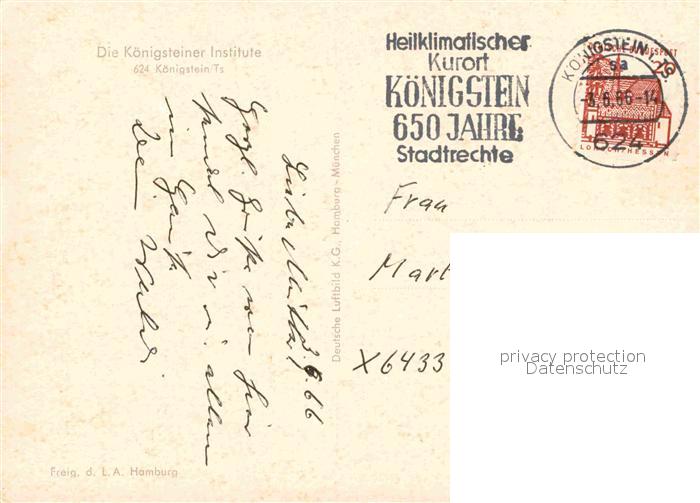 Die Königsteiner Institute
624 Königstein/Ts
Heilklimatischer
Kurort
KÖNIGSTEIN
650 JAHRE
Stadtrechte
KÖNIGSTEIN, TS
sa
-3.6.66-14
624
DEUTSCHE BUNDESPOST
LORSCH/HESSEN
Liebe Mutter!
3.6.66
Herzl. Grüße von hier
sendet Dir u. allen
Dein
Frau
Mart
X6433
Deutsche Luftbild K.G., Hamburg-München
Freig. d. L.A. Hamburg
privacy protection
Datenschutz